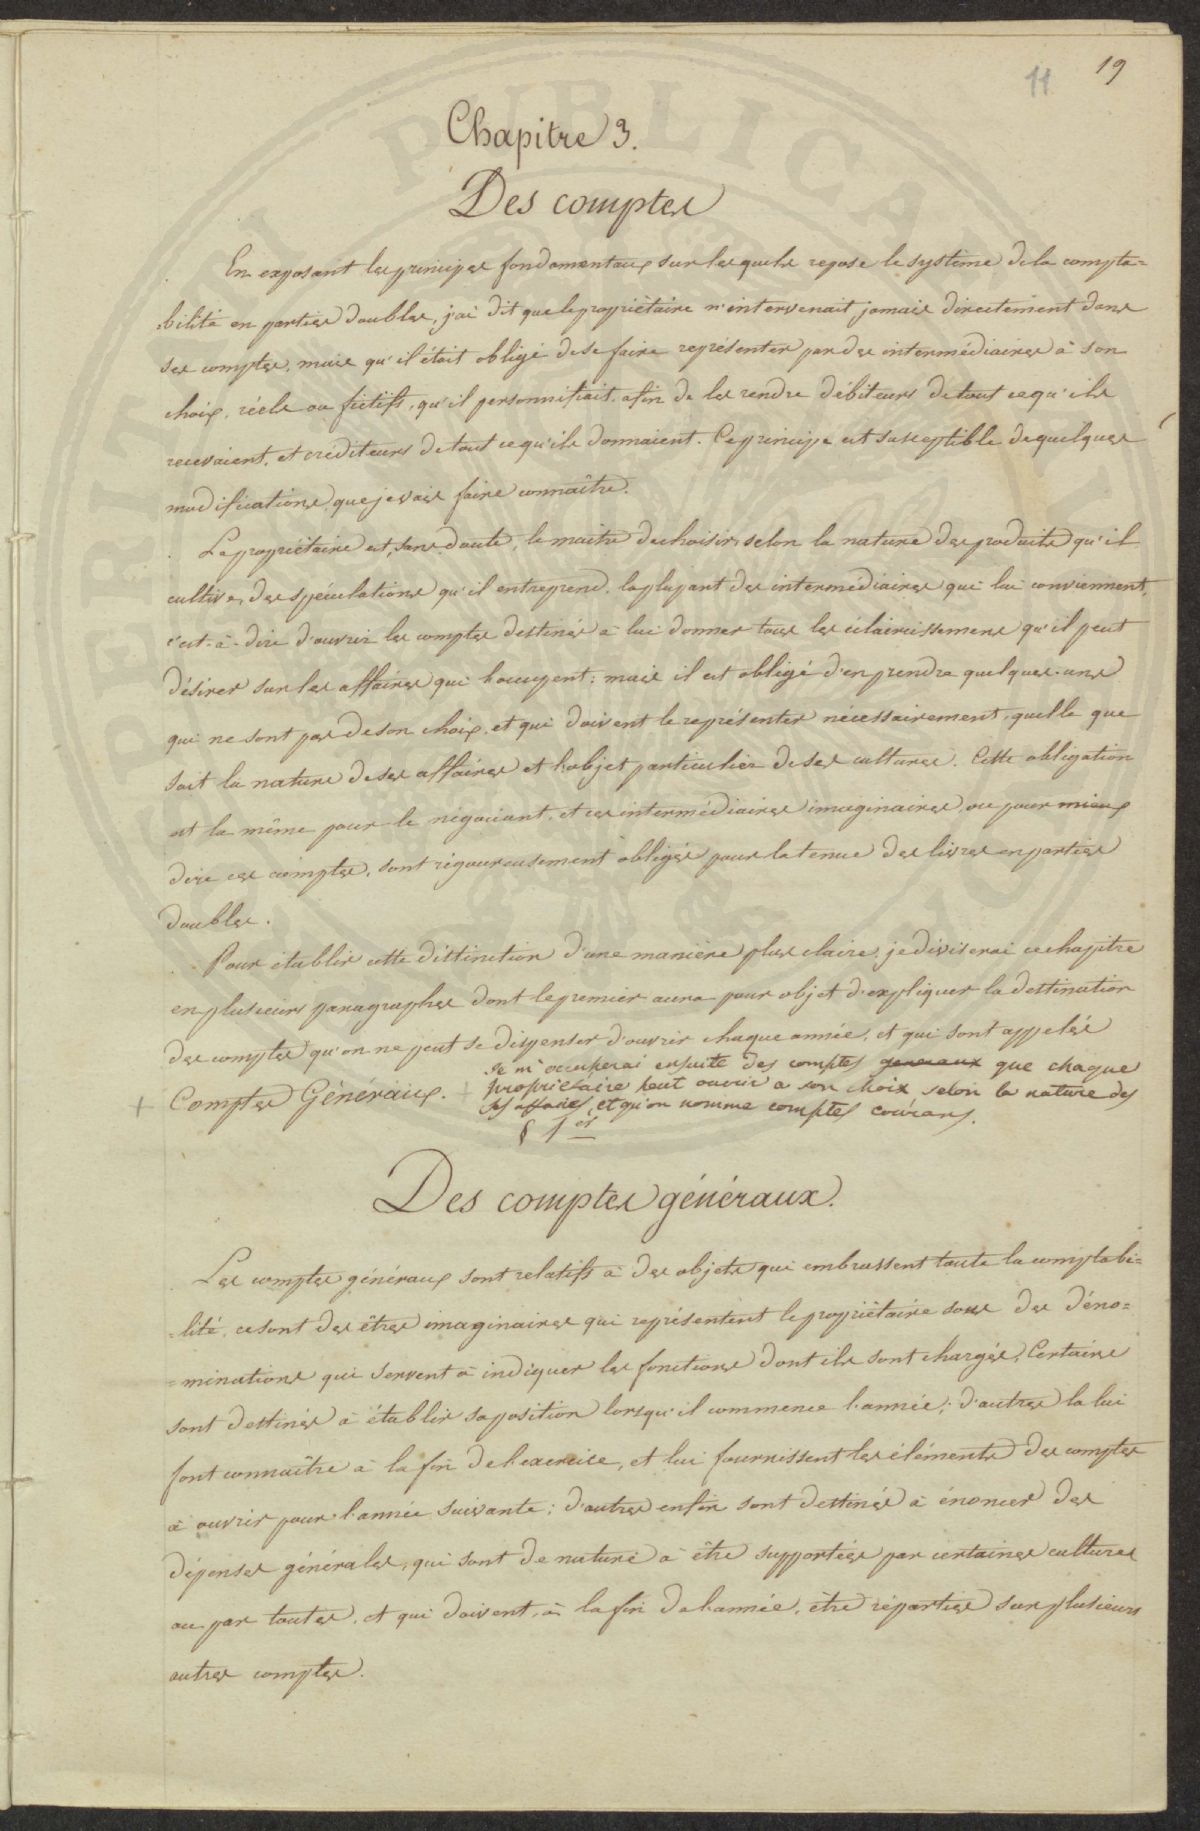 19
11
Chapitre 3.
Des comptes
En exposant les principes fondamentaux sur lesquels repose le système de la compta=
=bilité en parties doubles, j'ai dit que le propriétaire n'intervenait jamais directement dans
ses comptes, mais qu'il était obligé de se faire représenter par des intermédiaires à son
choix, réels ou fictifs, qu'il personnifiait afin de les rendre débiteurs de tout ce qu'ils
recevaient, et créditeurs de tout ce qu'ils donnaient. Ce principe est susceptible de quelques
modifications que je vais faire connaître.
Le propriétaire est, sans doute, le maître de choisir, selon la nature des produits qu'il
cultive, des spéculations qu'il entreprend, la plupart des intermédiaires qui lui conviennent,
c'est-à-dire d'ouvrir les comptes destinés à lui donner tous les éclaircissemens qu'il peut
désirer sur les affaires qui l'occupent : mais il est obligé d'en prendre quelques-uns
qui ne sont pas de son choix, et qui doivent le représenter nécessairement, quelle que
soit la nature de ses affaires et l'objet particulier de ses cultures. Cette obligation
est la même pour le négociant, et ces intermédiaires imaginaires, ou pour mieux
dire ces comptes, sont rigoureusement obligés pour la tenue des livres en parties
doubles.
Pour établir cette distinction d'une manière plus claire, je diviserai ce chapitre
en plusieurs paragraphes dont le premier aura pour objet d'expliquer la destination
des comptes qu'on ne peut se dispenser d'ouvrir chaque année, et qui sont appelés
+ Comptes Généraux. + Je m'occuperai ensuite des comptes generaux que chaque
propriétaire peut ouvrir a son choix selon la nature des
ses affaires, et qu'on nomme comptes courans.
§ 1er
Des comptes généraux.
Les comptes généraux sont relatifs à des objets qui embrassent toute la comptabi=
=lité, ce sont des êtres imaginaires qui représentent le propriétaire sous des déno=
=minations qui servent à indiquer les fonctions dont ils sont chargés. Certains
sont destinés à établir sa position lorsqu'il commence l'année; d'autres la lui
font connaître à la fin de l'exercice, et lui fournissent les éléments des comptes
à ouvrir pour l'année suivante; d'autres enfin sont destinés à énoncer des
dépenses générales, qui sont de nature à être supportées par certaines cultures
ou par toutes, et qui doivent, à la fin de l'année, être réparties sur plusieurs
autres comptes.